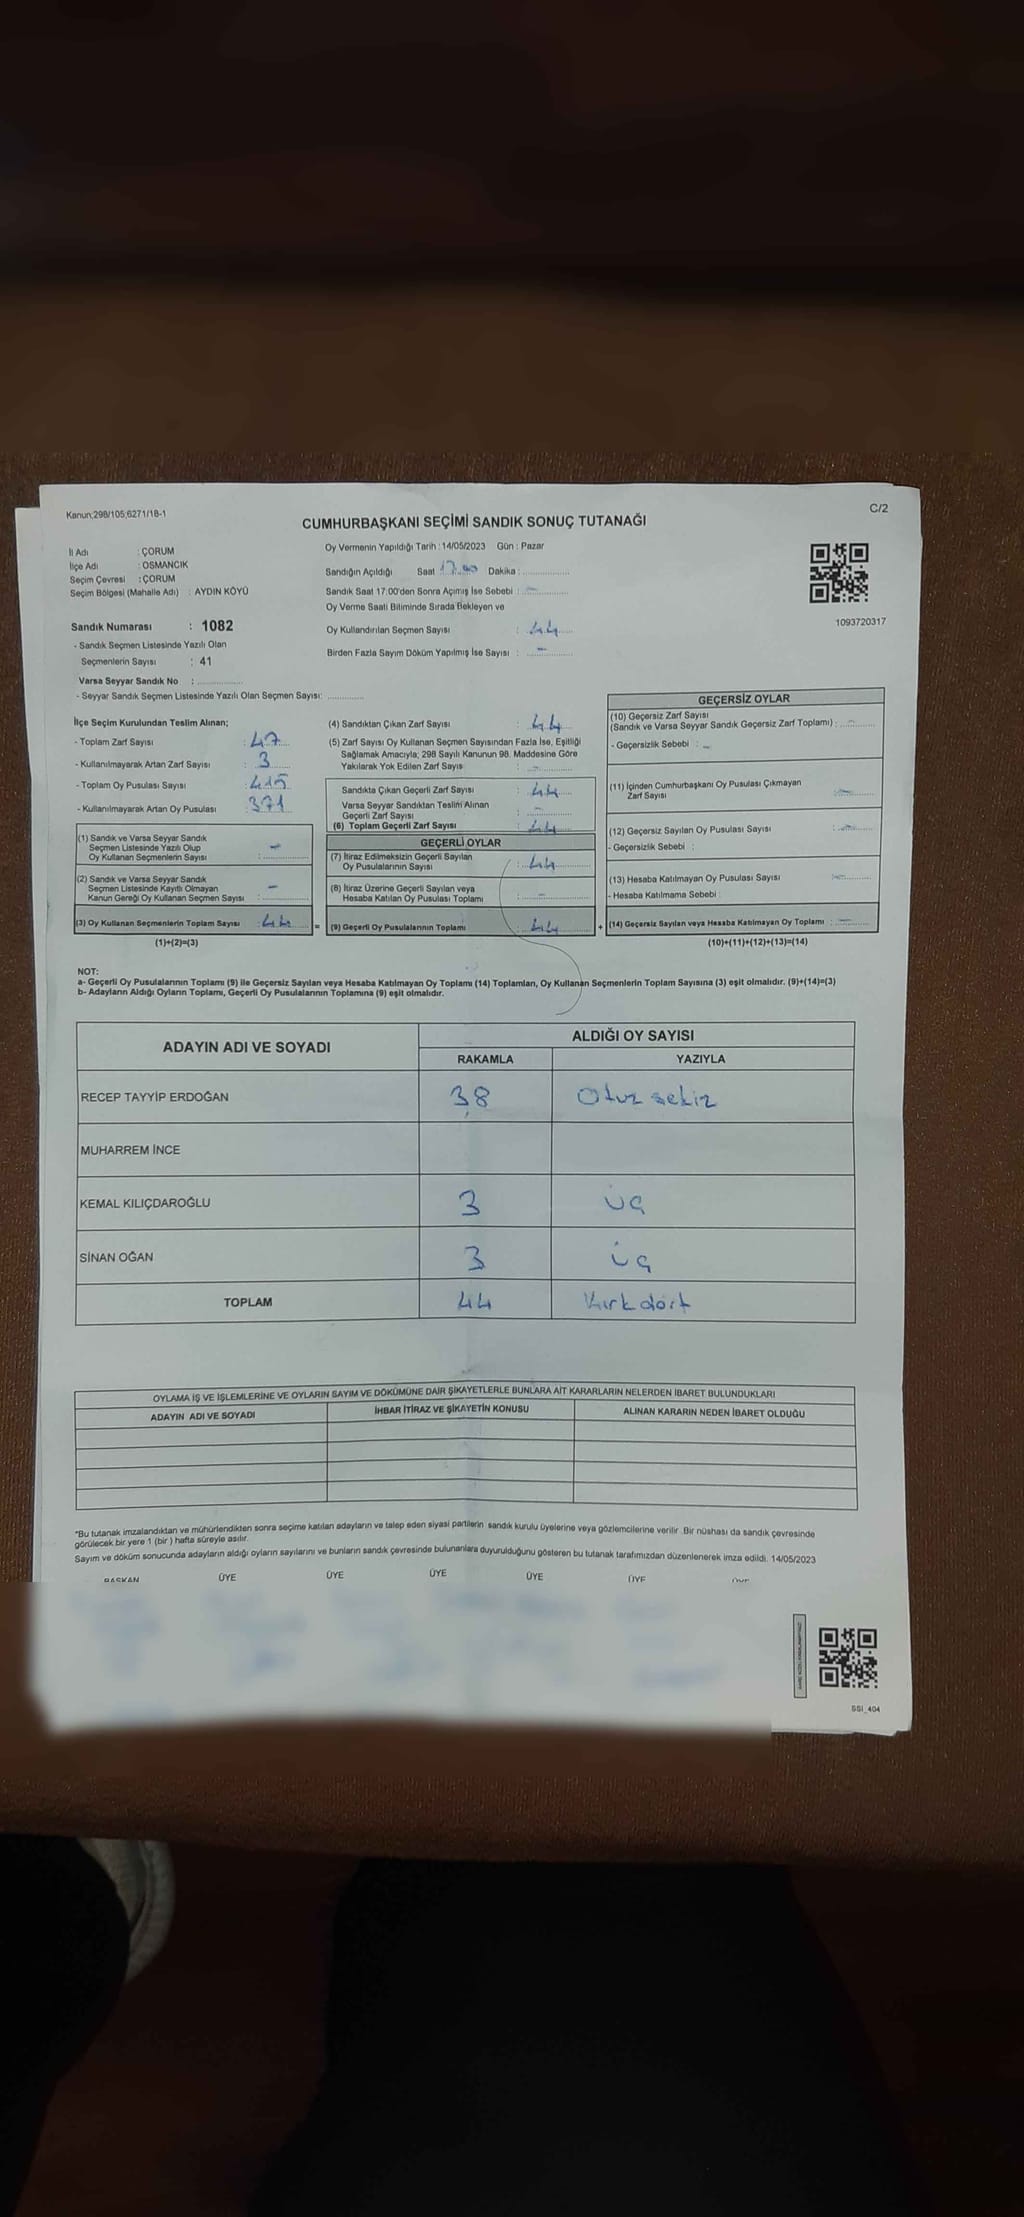 Kanun;298/105;6271/18-1
C/2
CUMHURBAŞKANI SEÇİMİ SANDIK SONUÇ TUTANAĞI
İl Adı : ÇORUM
İlçe Adı : OSMANCIK
Seçim Çevresi : ÇORUM
Seçim Bölgesi (Mahalle Adı) : AYDIN KÖYÜ
Oy Vermenin Yapıldığı Tarih : 14/05/2023 Gün : Pazar
Sandığın Açıldığı Saat 17.00 Dakika :
Sandık Saat 17:00'den Sonra Açımış İse Sebebi : -
Oy Verme Saati Bitiminde Sırada Bekleyen ve
Oy Kullandırılan Seçmen Sayısı : 44
Birden Fazla Sayım Döküm Yapılmış İse Sayısı : -
1093720317
Sandık Numarası : 1082
- Sandık Seçmen Listesinde Yazılı Olan
Seçmenlerin Sayısı : 41
Varsa Seyyar Sandık No :
- Seyyar Sandık Seçmen Listesinde Yazılı Olan Seçmen Sayısı:
İlçe Seçim Kurulundan Teslim Alınan;
- Toplam Zarf Sayısı : 47
- Kullanılmayarak Artan Zarf Sayısı : 3
- Toplam Oy Pusulası Sayısı : 415
- Kullanılmayarak Artan Oy Pusulası : 371
(1) Sandık ve Varsa Seyyar Sandık
Seçmen Listesinde Yazılı Olup
Oy Kullanan Seçmenlerin Sayısı : -
(2) Sandık ve Varsa Seyyar Sandık
Seçmen Listesinde Kayıtlı Olmayan
Kanun Gereği Oy Kullanan Seçmen Sayısı : -
(3) Oy Kullanan Seçmenlerin Toplam Sayısı : 44
(1)+(2)=(3)
(4) Sandıktan Çıkan Zarf Sayısı : 44
(5) Zarf Sayısı Oy Kullanan Seçmen Sayısından Fazla İse, Eşitliği
Sağlamak Amacıyla; 298 Sayılı Kanunun 98. Maddesine Göre
Yakılarak Yok Edilen Zarf Sayısı : -
Sandıkta Çıkan Geçerli Zarf Sayısı : 44
Varsa Seyyar Sandıktan Teslim Alınan
Geçerli Zarf Sayısı : -
(6) Toplam Geçerli Zarf Sayısı : 44
GEÇERLİ OYLAR
(7) İtiraz Edilmeksizin Geçerli Sayılan
Oy Pusulalarının Sayısı : 44
(8) İtiraz Üzerine Geçerli Sayılan veya
Hesaba Katılan Oy Pusulası Toplamı : -
= (9) Geçerli Oy Pusulalarının Toplamı : 44
GEÇERSİZ OYLAR
(10) Geçersiz Zarf Sayısı
(Sandık ve Varsa Seyyar Sandık Geçersiz Zarf Toplamı) : -
- Geçersizlik Sebebi : -
(11) İçinden Cumhurbaşkanı Oy Pusulası Çıkmayan
Zarf Sayısı : -
(12) Geçersiz Sayılan Oy Pusulası Sayısı : -
- Geçersizlik Sebebi :
(13) Hesaba Katılmayan Oy Pusulası Sayısı : -
- Hesaba Katılmama Sebebi :
+ (14) Geçersiz Sayılan veya Hesaba Katılmayan Oy Toplamı : -
(10)+(11)+(12)+(13)=(14)
NOT:
a- Geçerli Oy Pusulalarının Toplamı (9) ile Geçersiz Sayılan veya Hesaba Katılmayan Oy Toplamı (14) Toplamları, Oy Kullanan Seçmenlerin Toplam Sayısına (3) eşit olmalıdır. (9)+(14)=(3)
b- Adayların Aldığı Oyların Toplamı, Geçerli Oy Pusulalarının Toplamına (9) eşit olmalıdır.
ADAYIN ADI VE SOYADI
ALDIĞI OY SAYISI
RAKAMLA YAZIYLA
RECEP TAYYİP ERDOĞAN 38 Otuz sekiz
MUHARREM İNCE
KEMAL KILIÇDAROĞLU 3 üç
SİNAN OĞAN 3 üç
TOPLAM 44 Kırk dört
OYLAMA İŞ VE İŞLEMLERİNE VE OYLARIN SAYIM VE DÖKÜMÜNE DAİR ŞİKAYETLERLE BUNLARA AİT KARARLARIN NELERDEN İBARET BULUNDUKLARI
ADAYIN ADI VE SOYADI İHBAR İTİRAZ VE ŞİKAYETİN KONUSU ALINAN KARARIN NEDEN İBARET OLDUĞU
*Bu tutanak imzalandıktan ve mühürlendikten sonra seçime katılan adayların ve talep eden siyasi partilerin sandık kurulu üyelerine veya gözlemcilerine verilir. Bir nüshası da sandık çevresinde
görülecek bir yere 1 (bir) hafta süreyle asılır.
Sayım ve döküm sonucunda adayların aldığı oyların sayılarını ve bunların sandık çevresinde bulunanlara duyurulduğunu gösteren bu tutanak tarafımızdan düzenlenerek imza edildi. 14/05/2023
BAŞKAN ÜYE ÜYE ÜYE ÜYE ÜYE ÜYE
SSI_404